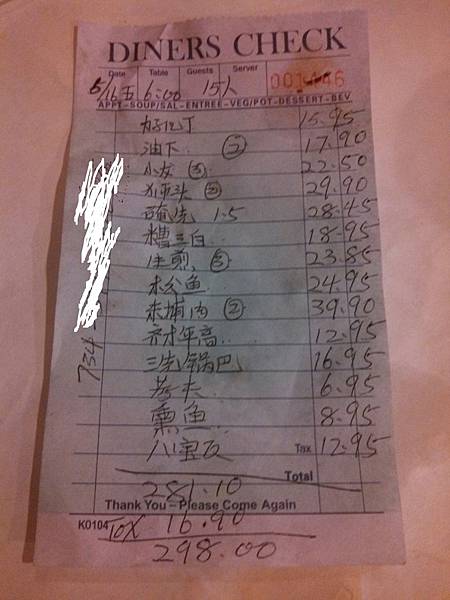 DINERS CHECK
Date Table Guests Server
5/16五 6:00 15人 001446
APPT-SOUP/SAL-ENTREE-VEG/POT-DESSERT-BEV
15.95
油下 ② 17.90
小友 ③ 22.50
狮头 ② 29.90
1.5 28.45
糟三白 18.95
生煎 ③ 23.85
松鱼 24.95
东埔肉 ② 39.90
年高 12.95
三先锅巴 16.95
考夫 6.95
熏鱼 8.95
八宝反 Tax 12.95
Total
281.10
Thank You - Please Come Again
K0104 TOX 16.90
298.00
734